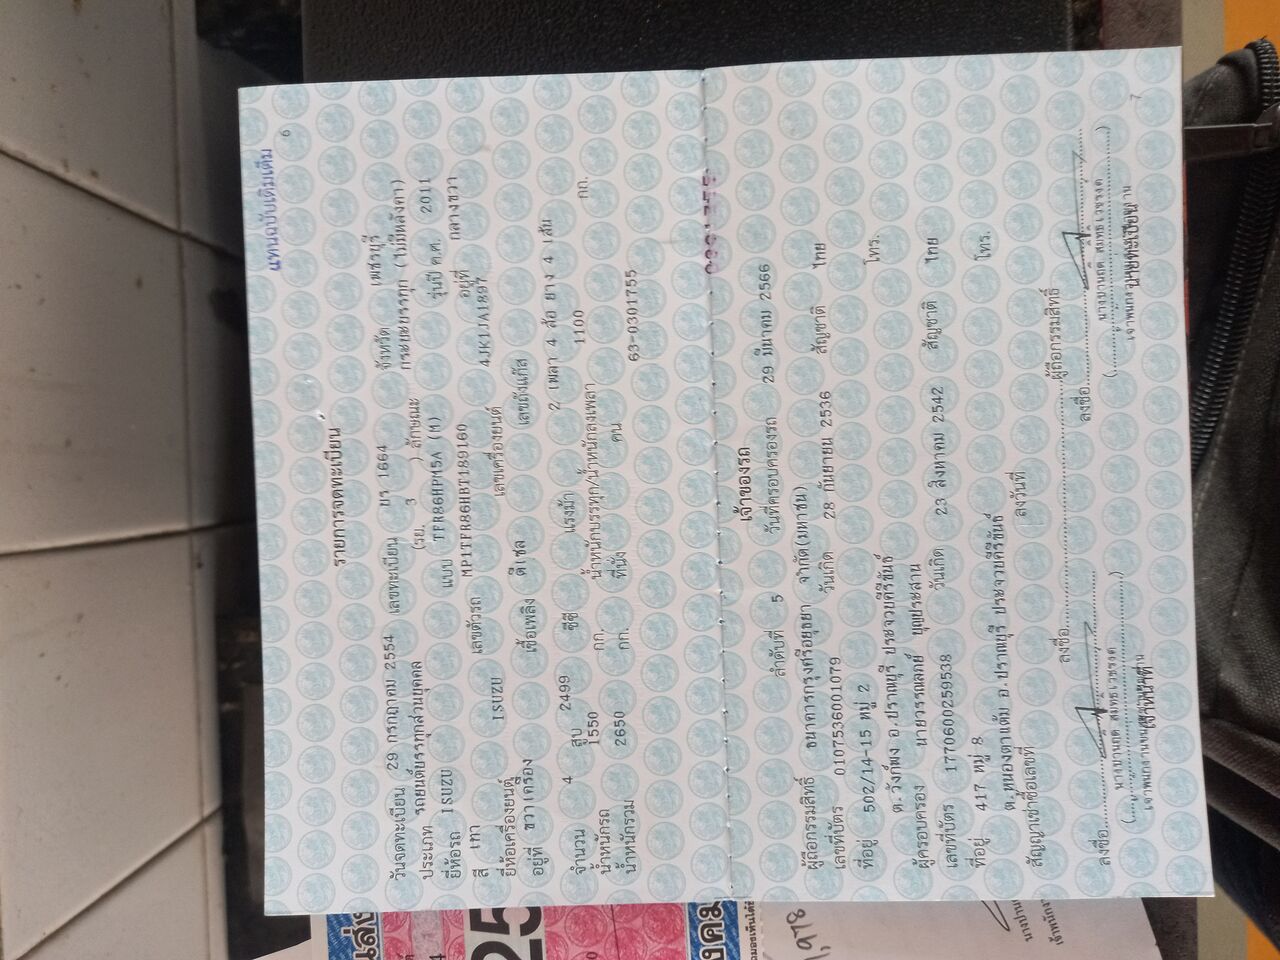 แทนฉบับเดิมเต็ม
6
รายการจดทะเบียน
วันจดทะเบียน 29 กรกฎาคม 2554 เลขทะเบียน ยร 1664 จังหวัด เพชรบุรี
ประเภท รถยนต์บรรทุกส่วนบุคคล (รย. 3 ) ลักษณะ กระบะบรรทุก (ไม่มีหลังคา)
ยี่ห้อรถ ISUZU แบบ TFR86HPM5A (M) รุ่นปี ค.ศ. 2011
สี เทา เลขตัวรถ MP1TFR86HBT189160 อยู่ที่ กลางขวา
ยี่ห้อเครื่องยนต์ ISUZU เลขเครื่องยนต์ 4JK1JA1897
อยู่ที่ ขวาเครื่อง เชื้อเพลิง ดีเซล เลขถังแก๊ส
จำนวน 4 สูบ 2499 ซีซี แรงม้า 2 เพลา 4 ล้อ ยาง 4 เส้น
น้ำหนักรถ 1550 กก. น้ำหนักบรรทุก/น้ำหนักลงเพลา 1100 กก.
น้ำหนักรวม 2650 กก. ที่นั่ง คน 63-0301755
เจ้าของรถ
ลำดับที่ 5 วันที่ครอบครองรถ 29 มีนาคม 2566
ผู้ถือกรรมสิทธิ์ ธนาคารกรุงศรีอยุธยา จำกัด(มหาชน)
เลขที่บัตร 0107536001079 วันเกิด 28 กันยายน 2536 สัญชาติ ไทย
ที่อยู่ 502/14-15 หมู่ 2 โทร.
ต.วังก์พง อ.ปราณบุรี ประจวบคีรีขันธ์
ผู้ครอบครอง นายวรรณลภย์ บุญประสาน
เลขที่บัตร 1770600259538 วันเกิด 23 สิงหาคม 2542 สัญชาติ ไทย
ที่อยู่ 417 หมู่ 8 โทร.
ต.หนองตาแต้ม อ.ปราณบุรี ประจวบคีรีขันธ์
สัญญาเช่าซื้อเลขที่ ลงวันที่
ลงชื่อ ผู้ถือกรรมสิทธิ์
ลงชื่อ ลงชื่อ
7
1,978
25